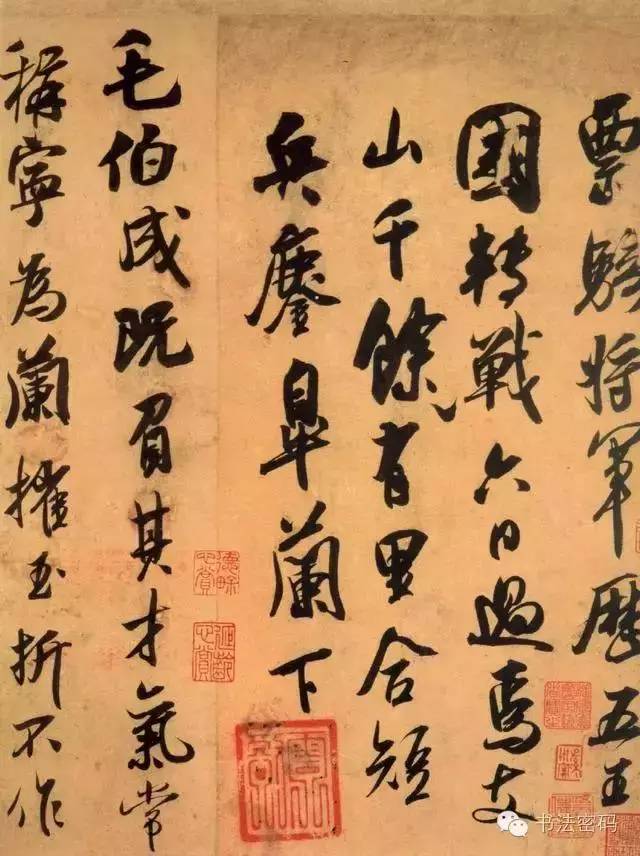 票騎将軍歷五王
國轉戰六日過焉支
山千餘有里合短
兵鏖皋蘭下
毛伯成既負其才氣常
稱寧為蘭摧玉折不作
书法密码